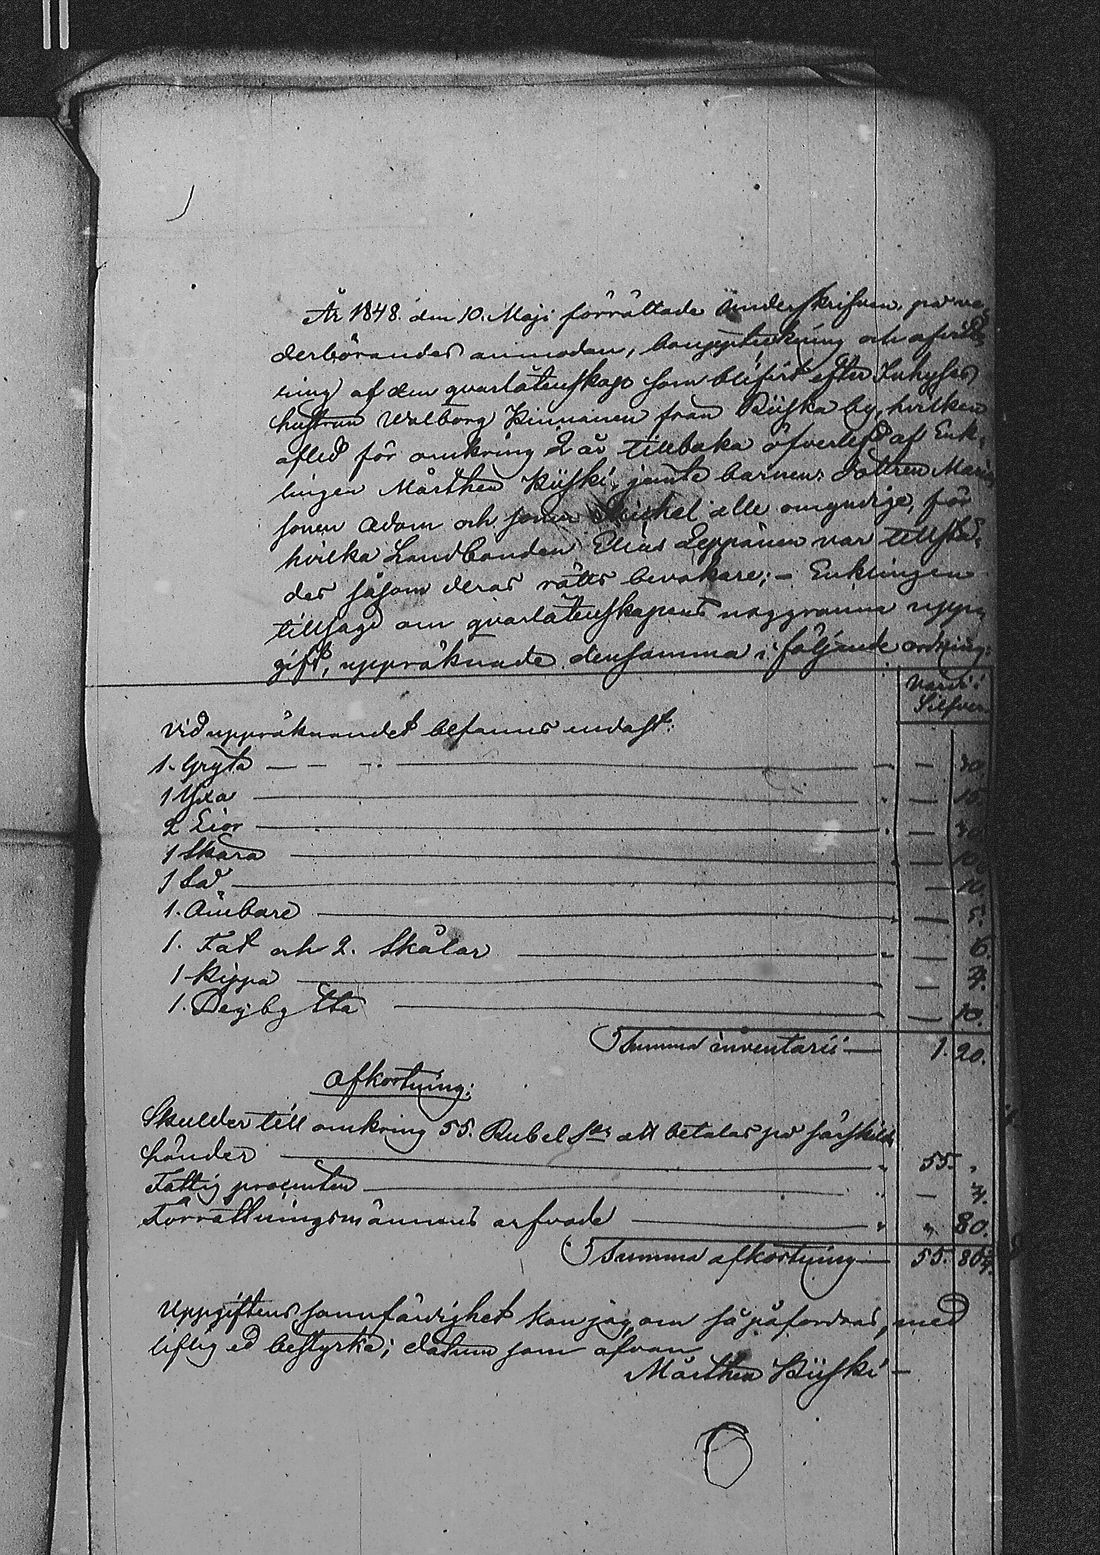 År 1848. den 10. Maji förrättade Underskrifven, på ve
derbörandes anmodan, bouppteckning och afvitt
ring af den qvarlåtenskap som blifvit efter Inhyses
hustrun Walborg Pinnanen från Kiiska by, hvilken
afled för omkring 2 år tillbaka öfverlefd af Enk„
lingen Mårthen Kiiski, jemte barnen: Dottren Maria
sonen Adam och sonen Michel alle omyndige, för
hvilka Landbonden Elias Leppänen var tillstä„
des såsom deras rätts bevakare; – Enklingen
tillsagd om qvarlåtenskapens noggranna upp„
gift, uppräknade densamma i följande ordning:
Värde i
Silfver
Vid uppräknandet befanns endast:
1. Gryta — 30.
1 Yxa — 15.
2 Lior — — 30.
1 Skära — 10.
1 Så — 10.
1. Ämbare — 5.
1. Fat och 2. Skålar — 6.
1 Kippa — 4.
1. Degbytta — 10.
Summa inventarii — 1. 20.
Afkortning:
Skulder till omkring 55. Rubel S:r att betalas på särskilda
händer — 55. „
Fattig procenten — 4.
Förrättningsmännens arfvode — „ 80.
Summa afkortning — 55. 84.
Uppgiftens sannfärdighet kan jag, om så påfordras, med
liflig ed bestyrka; datum som ofvan
Mårthen Kiiski –